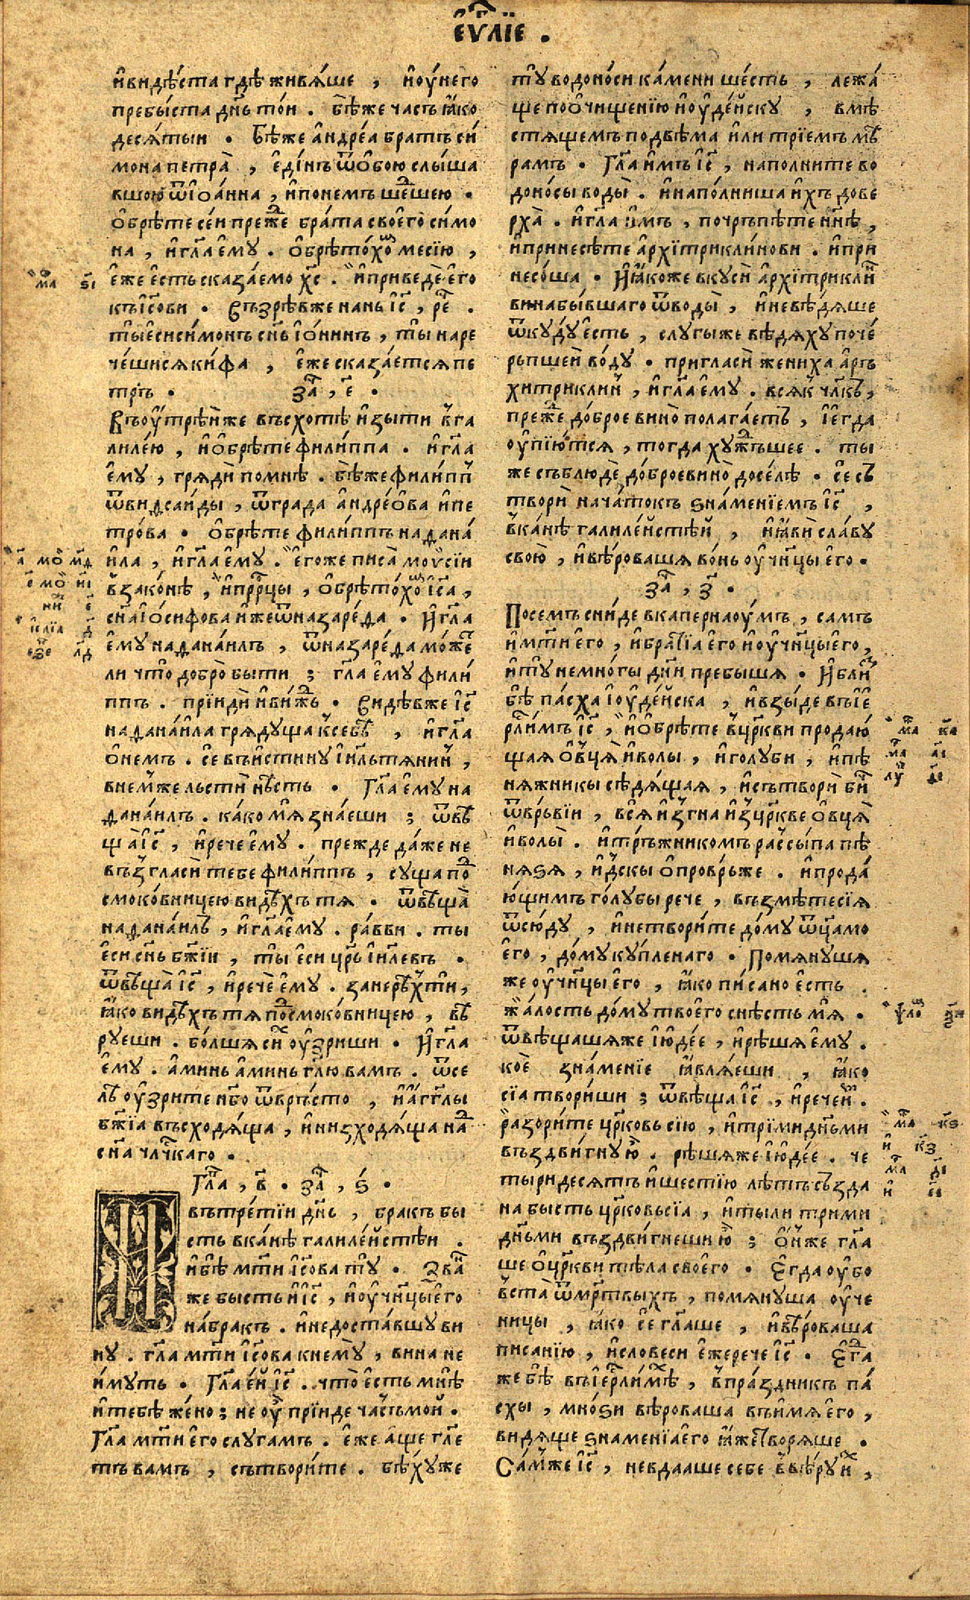 еѵⷢ҇лїе .
и҆видѣ́ста гдѣ живѧ́ше , и҆оу҆него
пребы́ста дн҃ь то́и . бѣ́же часъ ꙗ҆́ко
десѧ́тыи . Бѣ́же а҆ндре́а братъ си́
мона петра̀ , е҆ди́нъ ѿо҆бою слы́ша
вшою ѿі҆оа́нна , и҆понемъ ше́дшею .
о҆брѣ́те се́и преⷤ҇е бра́та своего̀ си́мо
на , и҆гл҃а е҆му . о҆брѣто́хоⷨ месі́ю ,
е҆́же е҆́сть сказа́емо хс҃ . и҆приведѐ е҆го
къ і҆со́ви . Въззрѣ́вже нань і҆с҃ , реⷱ҇ .
ты̀ е҆си си́монъ сн҃ъ і҆о́нинъ , ты̀ наре
че́шисѧ ки́фа , е҆́же сказа́етсѧ пе
тръ . заⷱ҇ , е҃ .
Въоу҆трѣ́иже въсхотѣ̀ и҆зы́ти в̾га
лиле́ю , и҆о҆брѣ́те фили́ппа . и҆гл҃а
е҆му , грѧдѝ помнѣ̀ . бѣ́же фили́пъⷫ҇
ѿвиѳсаи́ды , ѿгра́да а҆ндре́ова и҆пе
тро́ва . о҆брѣ́те фили́ппъ наѳана́
и҆ла , и҆гл҃а е҆му . е҆го́же писа̀ моѷсі́и
в̾зако́нѣ , и҆прⷪ҇рцы , о҆брѣто́хоⷨ і҆с҃а ,
сн҃а і҆о́сифова и҆́же ѿназаре́ѳа . И҆гл҃а
е҆му наѳана́илъ , ѿназаре́ѳа мо́жеⷮ
ли что̀ добро̀ бы́ти ; гл҃а е҆му фили́
ппъ . прїидѝ и҆ви́жⷣь . Видѣ́вже і҆с҃
наѳана́ила грѧдуща ксебѣ̀ , и҆гл҃а
о҆немъ . се въи́стину і҆и҃льтѧнинъ ,
внемже льсти́ нѣ́сть . Гл҃а е҆му на
ѳана́илъ . ка́ко мѧ̀ зна́еши ; ѿвѣ
ща̀ і҆с҃ , и҆рече е҆му . прежде да́же не
възгласѝ тебе фили́ппъ , су́ща поⷣ
смоко́вницею ви́дѣхъ тѧ . ѿвѣща̀
наѳана́илъ , и҆гл҃а е҆му . ра́вви . ты
е҆си сн҃ъ бж҃їи , ты̀ е҆си цр҃ь і҆и҃левъ .
ѿвѣща̀ і҆с҃ , и҆речѐ е҆му . занерѣ́хти ,
ꙗ҆́ко ви́дѣхъ тѧ поⷣсмоко́вницею , вѣ́
руеши . бо́лшаѧ си́хъ оу҆́зриши . И҆гл҃а
е҆му . а҆ми́нь а҆ми́нь гл҃ю вамъ . ѿсе
лѣ̀ оу҆́зрите не҃бо ѿвръ́сто , и҆а҆́гг҃лы
бж҃їа въсходѧ́ща , и҆низходѧ́ща наⷣ
сн҃а чл҃чⷭ҇каго .
Глаⷡ҇ , в҃ . заⷱ҇ , ѕ҃ .
Въ тре́тїи дн҃ь , бракъ бы
сть вка́нѣ галиле́йстѣи .
и҆бѣ̀ мт҃и і҆со́ва ту̀ . Зваⷩ҇
же бы́сть и҆і҆с҃ , и҆оу҆чн҃цы е҆го
на́бракъ . и҆недоста́вшу ви
ну . гл҃а мт҃и і҆со́ва к̾нему̀ , вина̀ не
и҆́муть . Гл҃а е҆и і҆с҃ . что̀ е҆́сть мнѣ̀
и҆тебѣ̀ же́но ; не оу҆̀ прїи́де ча́съ мой .
Гл҃а мт҃и е҆го слуга́мъ . е҆́же а҆́ще гл҃е
тъ вамъ , сътвори́те . бѣ́ху же
ту̀ водоно́си ка́мени ше́сть , лежа́
ще поо҆чище́нїю и҆оу҆де́йску , вмѣ
стѧ́щемъ подвѣ́ма и҆ли трїемъ мѣ́
рамъ . Гл҃а и҆мъ і҆с҃ , напо́лните во
доно́сы воды̀ . и҆напо́лниша и҆́хъ до ве
рха̀ . и҆гл҃а и҆мъ , почръпѣ́те нн҃ѣ ,
и҆принесѣ́те а҆рхїтрикли́нови . и҆при
несо́ша . И҆ꙗ҆́коже вкуси́ а҆рхїтрикли́ⷩ҇
вина бы́вшаго ѿводы̀ , и҆невѣ́дѧше
ѿку́ду е҆́сть , слугы́же вѣ́дѧху поче́
рпшеи во́ду . пригласѝ жениха̀ а҆рхъ
хитрикли́нъ , и҆гл҃а е҆му . всѧ́к чл҃къ ,
преⷤ҇е до́брое вино̀ полага́етъ , і҆е҆гда
оу҆пїю́тсѧ , тогда ху́ждъшее . ты
же съблю́де до́броевино̀ досе́лѣ . се съ
творѝ нача́токъ зна́менїемъ і҆с҃ ,
в̾ка́нѣ галиле́йстѣй , и҆ꙗ҆вѝ сла́ву
свою , и҆вѣ́роваша во́нь оу҆чн҃цы е҆го .
заⷱ҇ , з҃ .
Посемъ сни́де вкаперна́оумъ , самъ
и҆мт҃и е҆го , и҆бра́тїа е҆го и҆оу҆чн҃цы е҆го ,
и҆ту̀ немно́гы дн҃и пребы́шѧ . И҆бли́ⷥ
бѣ̀ па́сха і҆оу҆де́йска , и҆взы́де въі҆е
рⷭ҇лимъ і҆с҃ , и҆о҆брѣ́те вцр҃кви продаю́
щаѧ о҆вцѧ̀ и҆волы , и҆го́луби , и҆пѣ́
нѧжникы сѣдѧ́щаѧ , и҆сътворѝ биⷱ҇
ѿвръ́вїи , всѧ̀ и҆згна и҆зцр҃кве о҆вцѧ̀
и҆волы̀ . и҆тръжнико́мъ рассы́па пѣ́
нѧзѧ , и҆дъскы̀ о҆прове́рьже . и҆прода́
ю́щимъ го́лубы рече , възмѣ́те сїѧ
ѿсю́ду , и҆нетвори́те до́му ѿц҃амо
е҆го , до́му ку́пленаго . Помѧну́шѧ
же оу҆чн҃цы е҆го , ꙗ҆́ко пи́сано е҆́сть .
жа́лость до́му твое́го снѣ́сть мѧ̀ .
ѿвѣща́шѧже і҆ю҆де́е , и҆рѣ́шѧ е҆му .
кое́ зна́менїе ꙗ҆влѧ́еши , ꙗ҆́ко
сїа̀ твори́ши ; ѿвѣща̀ і҆с҃ , и҆речеи҆мъ .
разори́те цр҃ковь сїю̀ , и҆трїми дн҃ьми
въздви́гну ю҆̀ . рѣ́шѧже і҆ю҆де́е . че
ты́ридесѧтъ и҆ше́стїю лѣ́тъ създа
на бы́сть цр҃ковьсїа̀ , и҆ты̀ли трими
дн҃ьми въздви́гнеши ю҆̀ ; О҆́нже гл҃а
ше о҆цр҃кви тѣ́ла своего̀ . Е҆гда оу҆бо
в̾ста̀ ѿмр҃твы́хъ , помѧну́ша оу҆че
ницы , ꙗ҆́ко се гл҃аше , и҆вѣ́роваша
писа́нїю , и҆словесѝ е҆же рече і҆с҃ . Е҆гⷣа
же бѣ̀ въі҆ерⷭ҇лимѣ , в̾пра́здникъ па́
схы , мно́зи вѣ́роваша въи҆́мѧ е҆го ,
ви́дѧще зна́менїа е҆го ꙗ҆́же творѧ́ше .
Са́мже і҆с҃ , невдаа́ше себе в̾вѣ́ру и҆́мъ ,